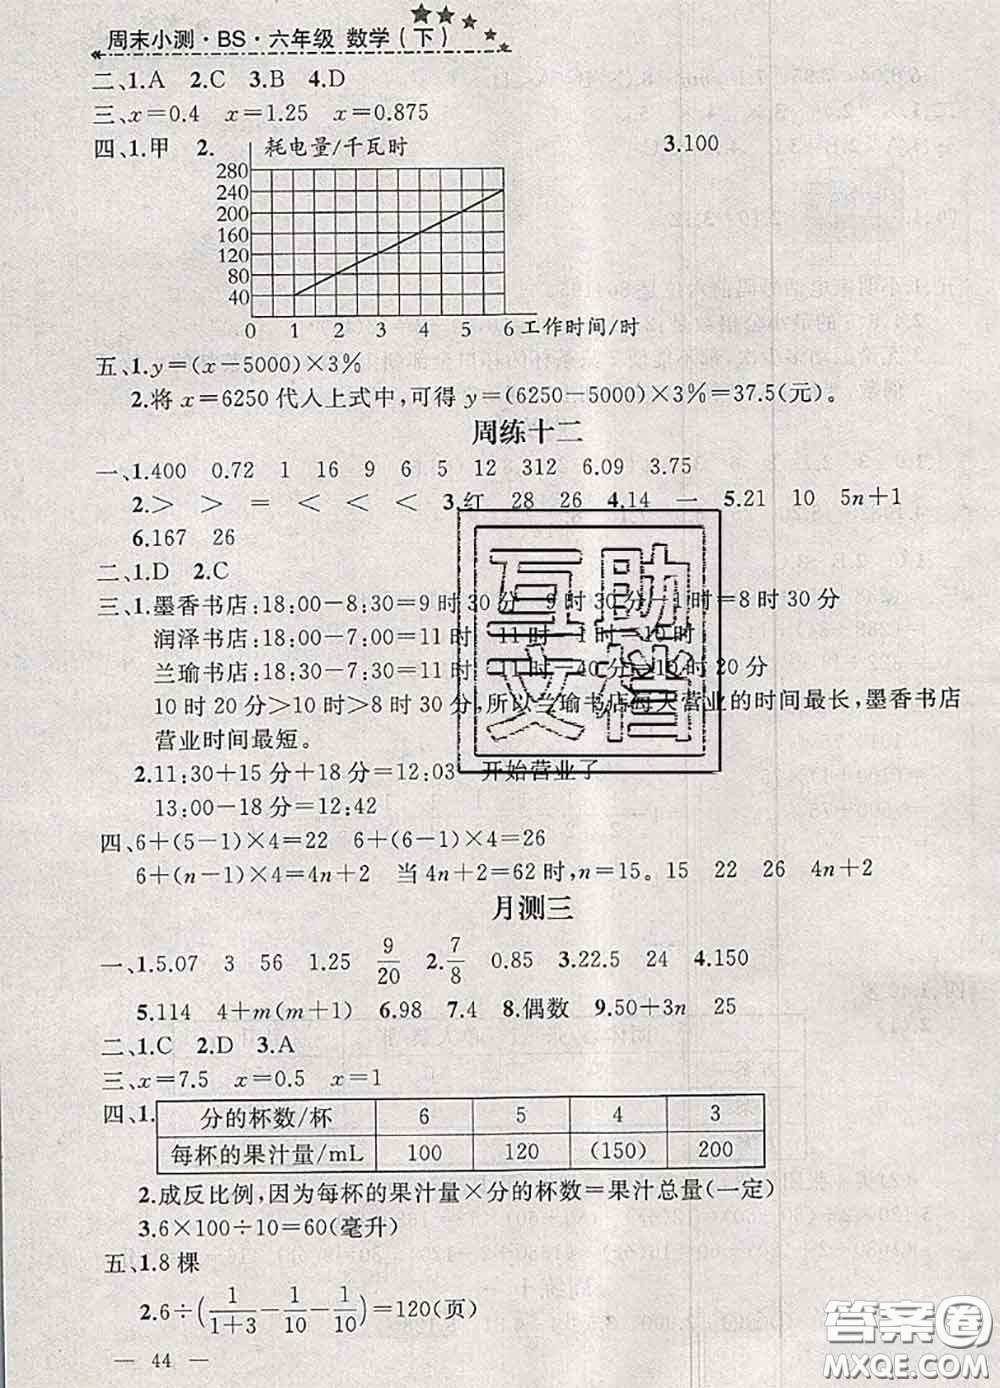 周末小测·BS·六年级 数学(下)
二、1.A 2.C 3.B 4.D
三、x=0.4 x=1.25 x=0.875
四、1.甲 2. 耗电量/千瓦时 3.100
280
240
200
160
120
80
40
0 1 2 3 4 5 6 工作时间/时
五、1.y=(x-5000)×3%
2.将 x=6250代人上式中,可得 y=(6250-5000)×3%=37.5(元)。
周练十二
一、1.400 0.72 1 16 9 6 5 12 312 6.09 3.75
2.> > = < < < 3.红 28 26 4.14 一 5.21 10 5n+1
6.167 26
二、1.D 2.C
三、1.墨香书店:18:00-8:30=9时30分 9时30分-1时=8时30分
润泽书店:18:00-7:00=11时 11时-1时=10时
兰瑜书店:18:30-7:30=11时 11时-40分=10时20分
10时20分>10时>8时30分,所以兰瑜书店每天营业的时间最长,墨香书店
营业时间最短。
2.11:30+15分+18分=12:03 开始营业了
13:00-18分=12:42
四、6+(5-1)×4=22 6+(6-1)×4=26
6+(n-1)×4=4n+2 当4n+2=62时,n=15。15 22 26 4n+2
月测三
一、1.5.07 3 56 1.25 9/20 2.7/8 0.85 3.22.5 24 4.150
5.114 4+m(m+1) 6.98 7.4 8.偶数 9.50+3n 25
二、1.C 2.D 3.A
三、x=7.5 x=0.5 x=1
四、1. 分的杯数/杯 6 5 4 3
每杯的果汁量/mL 100 120 (150) 200
2.成反比例,因为每杯的果汁量×分的杯数=果汁总量(一定)
3.6×100÷10=60(毫升)
五、1.8棵
2.6÷(1/(1+3)-1/10-1/10)=120(页)
— 44 —
互助
文档
答案圈
MXQE.COM